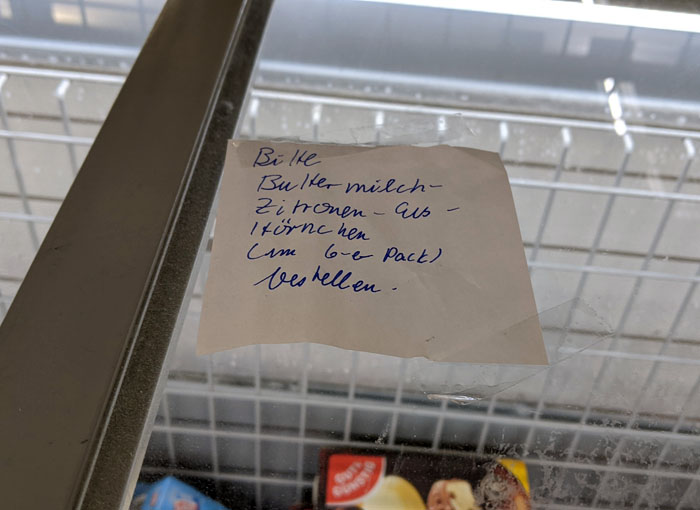 Bitte
Buttermilch-
Zitronen-Eis-
Hörnchen
(im 6-er Pack)
bestellen.
GUT&
GÜNSTIG